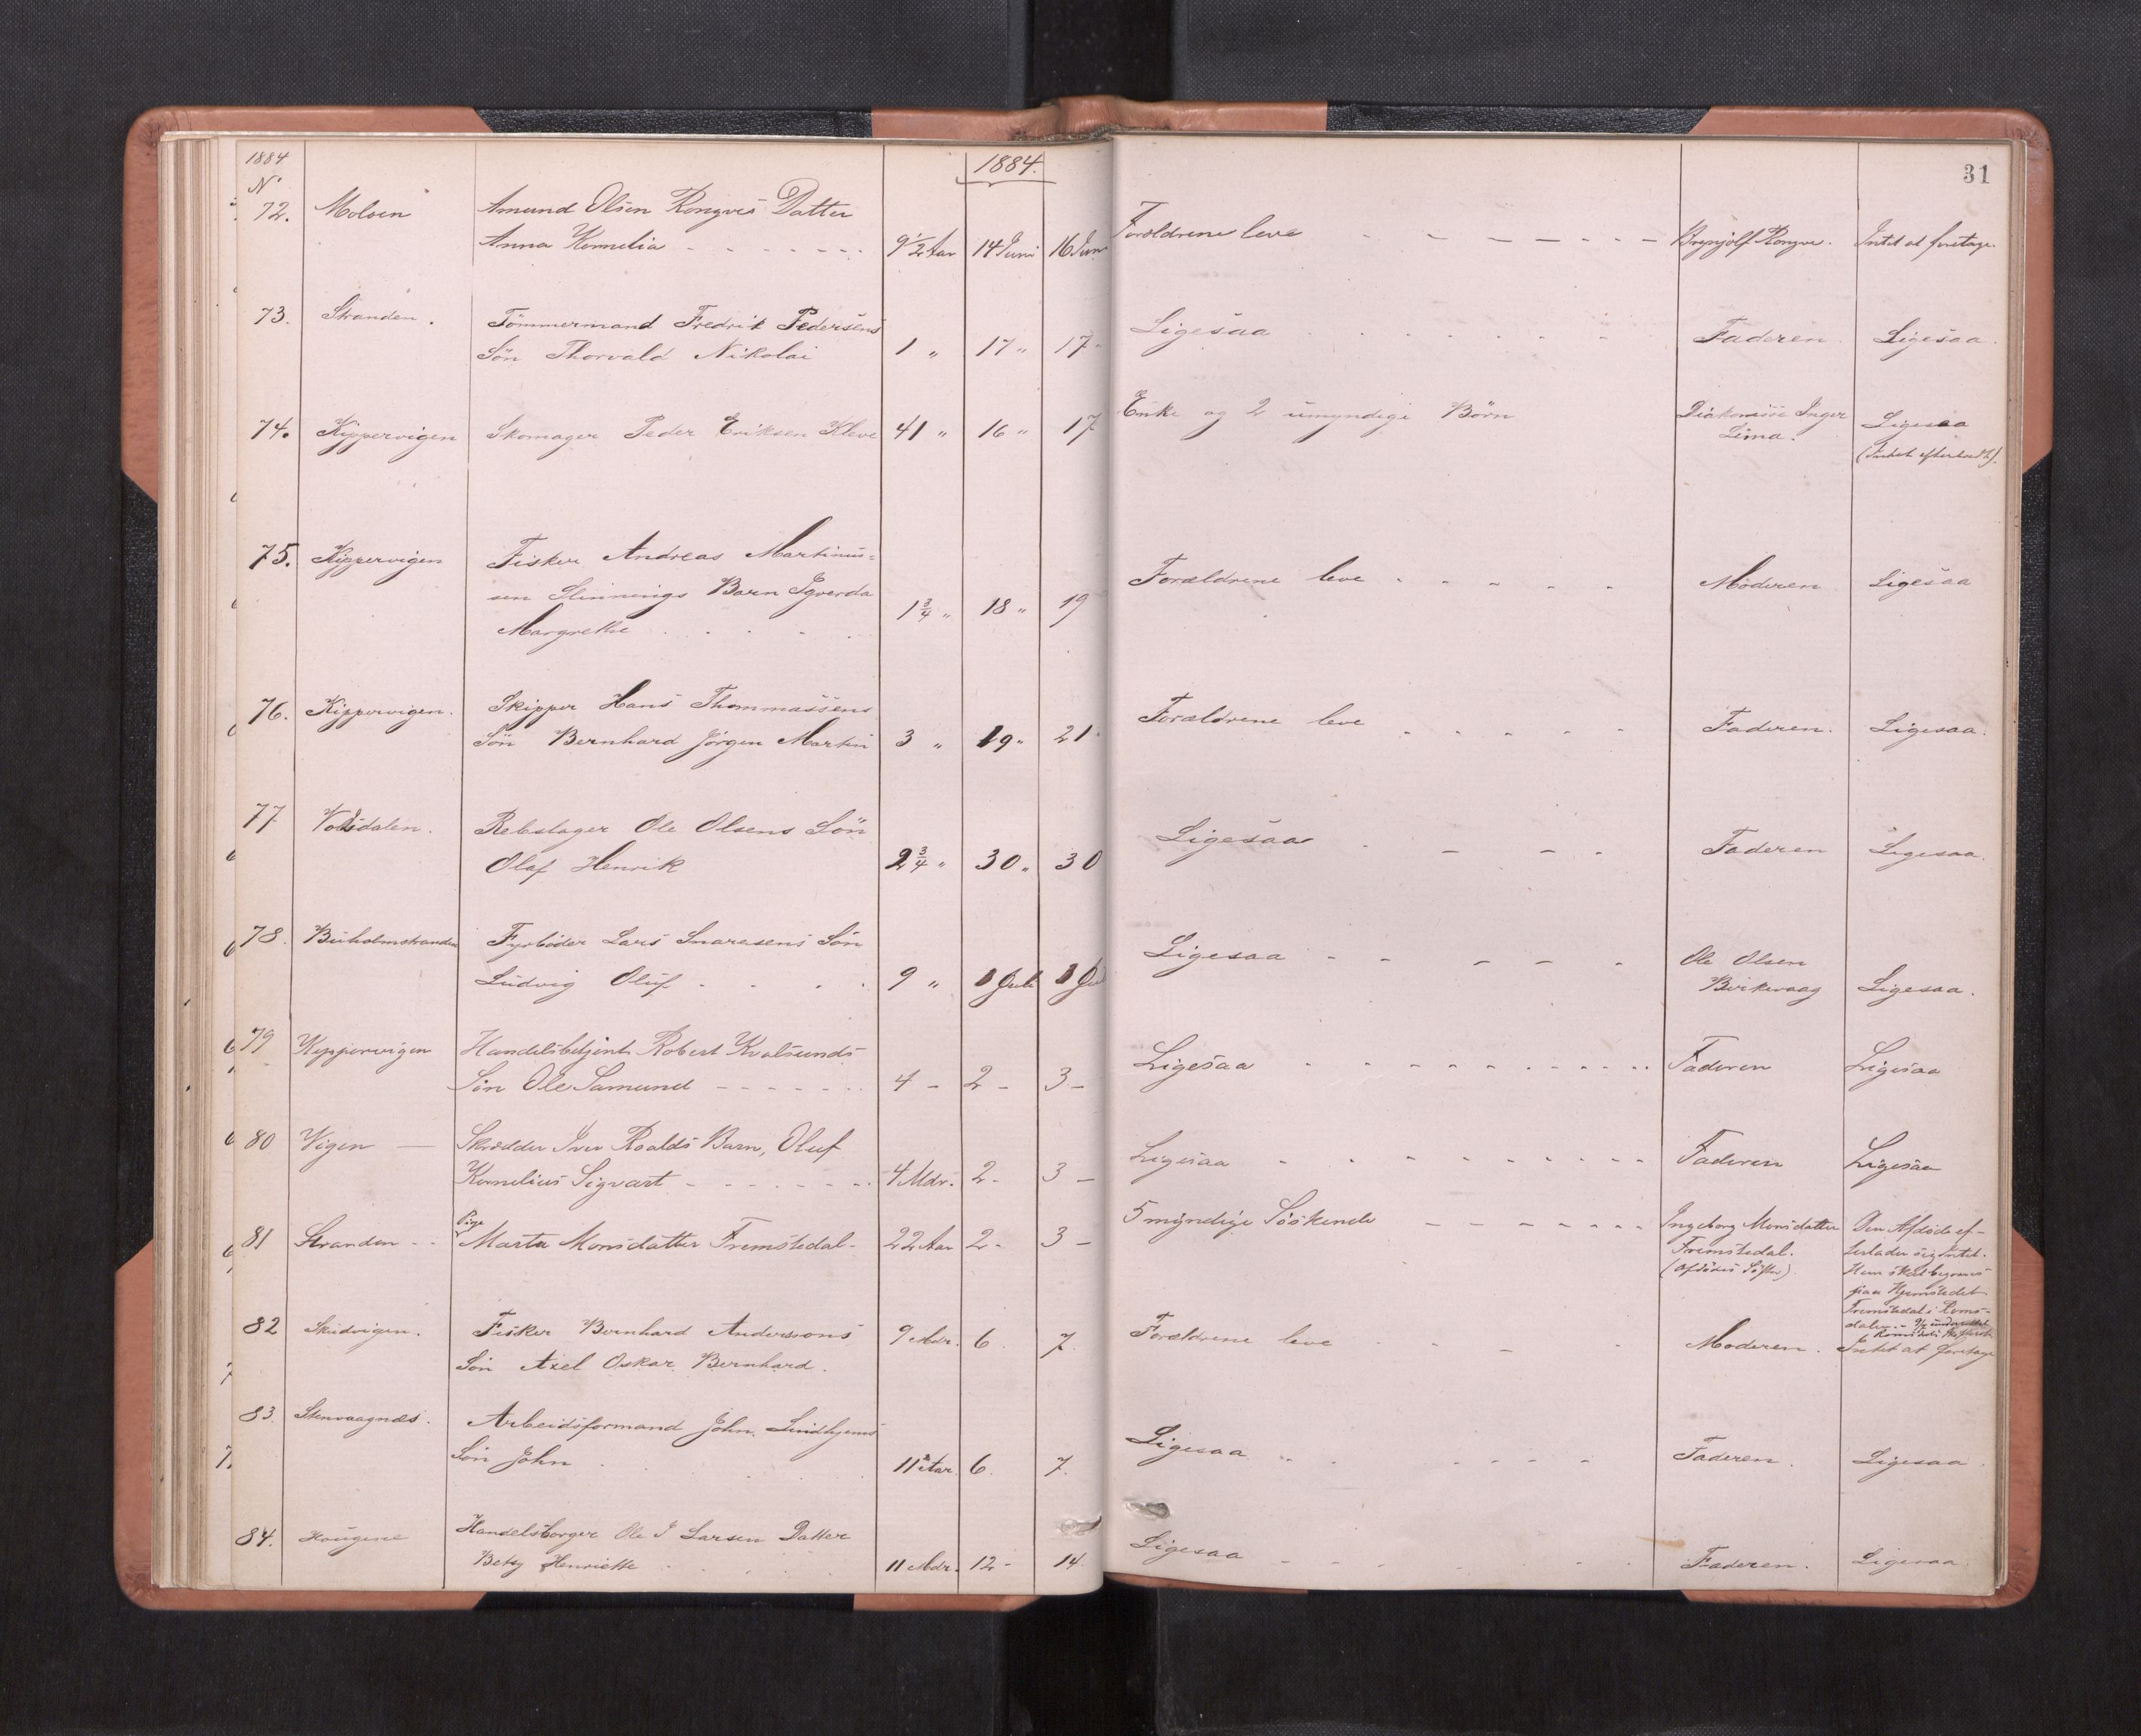 1884
1884.
31
No
72. Molven Amund Olsen Rongves Datter
Anna Kornelia 9 1/2 Aar 14 Juni 16 Juni Forældrene leve Brynjolf Rongve. Intet at foretage.
73. Stranden. Tömmermand Fredrik Pedersens
Sön Thorvald Nikolai 1 " 17 " 17 " Ligesaa Faderen Ligesaa.
74. Kippervigen Skomager Peder Eriksen Kleve 41 " 16 " 17 Enke og 2 umyndige Börn Diakonisse Inger Ligesaa
Lima. (Intet efterladt).
75. Kippervigen Fisker Andreas Martinus-
sen Slinnings Barn 1 3/4 " 18 " 19 Forældrene leve Moderen Ligesaa
Margrethe
76. Kippervigen. Skipper Hans Thommassens
Sön Bernhard Jörgen Martin 3 " 19 " 21 " Forældrene leve Faderen. Ligesaa.
77 Volsdalen. Rebslager Ole Olsens Sön
Olaf Henrik 2 3/4 " 30 " 30 Ligesaa Faderen Ligesaa.
78. Buholmstranden Fyrböder Lars Snaresens Sön Ligesaa Ole Olsen
Ludvig Oluf 9 " 1 Juli 1 Jul Birkevaag Ligesaa.
79 Kippervigen Handelsbetjent Robert Kvalsunds
Sön Ole Samund 4 - 2 - 3 - Ligesaa Faderen Ligesaa
80 Vigen Skrædder Iver Roalds Barn, Oluf
Kornelius Sigvart 4 Mdr. 2 - 3 - Ligesaa Faderen Ligesaa
81 Stranden Pige
Marta Monsdatter Fremstedal 22 Aar 2 - 3 - 5 myndige Söskende Ingeborg Monsdatter Den Afdöde ef-
Fremstedal. terlader sig Intet.
(Afdödes Söster) Hun skal begraves
paa Hjemstedet
Fremstedal i Roms-
dalen.
82 Skidvigen. Fisker Bernhard Anderssons 9 Mdr. 6 7. Forældrene leve Moderen. Intet at foretage
Sön Axel Oskar Bernhard.
83. Stenvaagnæs. Arbeidsformand John Lindhjems
Sön John 11 Aar. 6. 7. Ligesaa Faderen. Ligesaa.
84. Hougene Handelsborger Ole J Larsen Datter
Betsy Henriette 11 Mdr. 12 - 14. Ligesaa Faderen. Ligesaa.